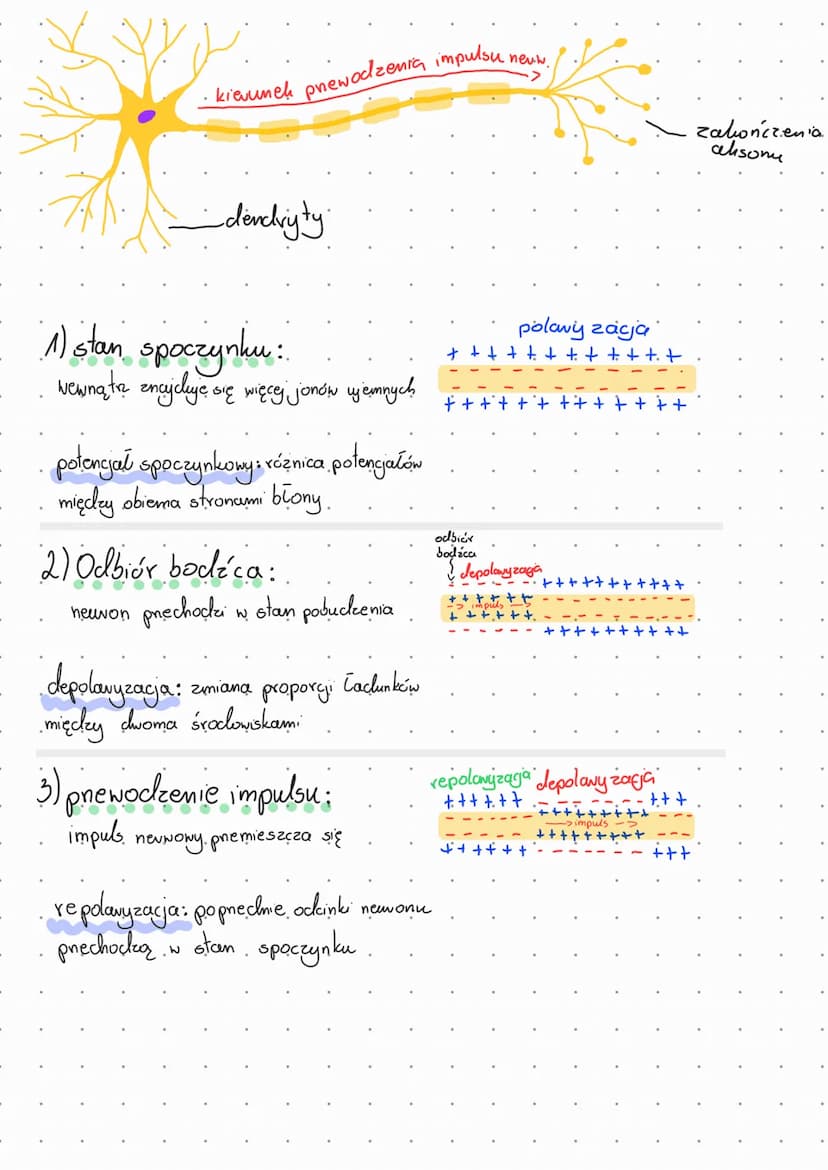 kierunek przewodzenia impulsu nerw.
zakończenia
aksonu
dendryty
1) stan spoczynku:
wewnątrz znajduje się więcej jonów ujemnych
polaryzacja
+ + + + + + + + + + + + +
- - - - - - - - - - - -
- - - - - - - - - -
+ + + + + + + + + + + + +
potencjał spoczynkowy: różnica potencjałów
między obiema stronami błony
2) Odbiór bodźca:
neuron przechodzi w stan pobudzenia
odbiór
bodźca
depolaryzacja
- - - - - - + + + + + + + + + + +
+ + + + + + - - - - - - - -
-> impuls ->
+ + + + + + - - - - - - - -
- - - - - - + + + + + + + + + +
depolaryzacja: zmiana proporcji ładunków
między dwoma środowiskami
3) przewodzenie impulsu:
impuls nerwowy przemieszcza się
repolaryzacja depolaryzacja
+ + + + + + - - - - - - - + + +
- - - - - - + + + + + + + + + - - -
-> impuls ->
- - - - - + + + + + + + + + - - -
+ + + + + + - - - - - - - + + +
repolaryzacja: poprzednie odcinki neuronu
przechodzą w stan spoczynku